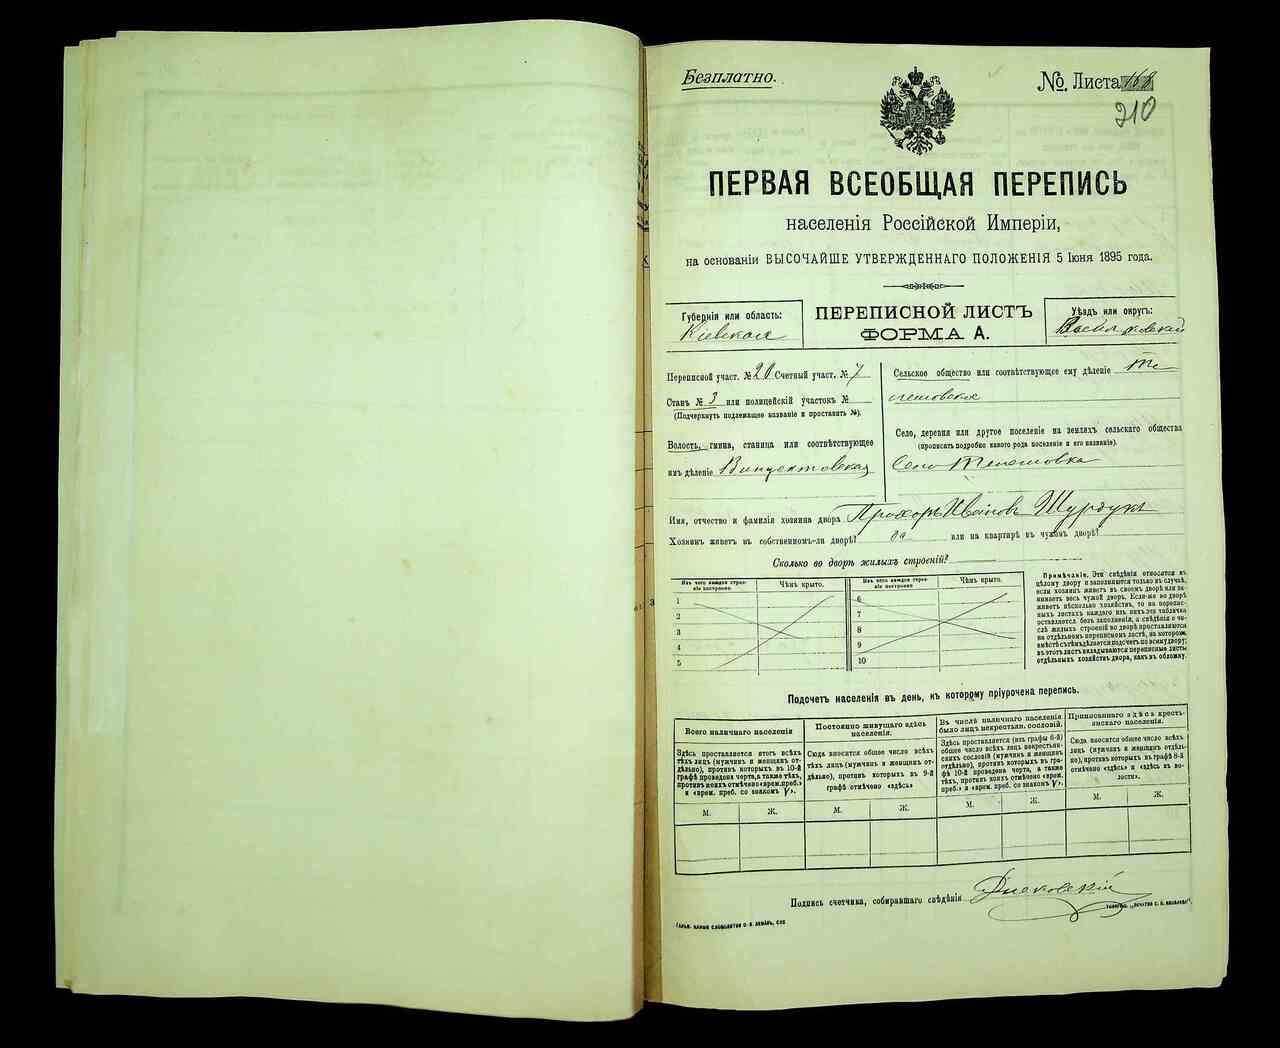 Безплатно.
№. Листа 168
210
ПЕРВАЯ ВСЕОБЩАЯ ПЕРЕПИСЬ
населенія Россійской Имперіи,
на основаніи ВЫСОЧАЙШЕ УТВЕРЖДЕННАГО ПОЛОЖЕНІЯ 5 Іюня 1895 года.
Губернія или область:
Кіевская
ПЕРЕПИСНОЙ ЛИСТЪ
ФОРМА А.
Уѣздъ или округъ:
Васильковскій
Переписной участ. № 20 Счетный участ. № 7
Станъ № 3 или полицейскій участокъ №
(Подчеркнуть подлежащее названіе и проставить №).
Волость, гмина, станица или соотвѣтствующее
имъ дѣленіе Винцентовская
Сельское общество или соотвѣтствующее ему дѣленіе Те
лешовское
Село, деревня или другое поселеніе на земляхъ сельскаго общества
(прописать подробно какого рода поселеніе и его названіе).
Село Телешовка
Имя, отчество и фамилія хозяина двора Прохоръ Ивановъ
Хозяинъ живетъ въ собственномъ-ли дворѣ? да или на квартирѣ въ чужомъ дворѣ?
Сколько во дворѣ жилыхъ строеній?
Изъ чего каждое строе-
ніе построено
Чѣмъ крыто.
Изъ чего каждое строе-
ніе построено
Чѣмъ крыто.
1
2
3
4
5
6
7
8
9
10
Примѣчаніе. Эти свѣдѣнія относятся къ
цѣлому двору и заполняются только въ случаѣ,
если хозяинъ живетъ въ своемъ дворѣ или за-
нимаетъ весь чужой дворъ. Если-же во дворѣ
живетъ нѣсколько хозяйствъ, то на перепис-
ныхъ листахъ каждаго изъ нихъ эта табличка
оставляется безъ заполненія, а свѣдѣнія о чи-
слѣ жилыхъ строеній во дворѣ проставляются
на отдѣльномъ переписномъ листѣ, на которомъ
вмѣстѣ съ тѣмъ дѣлается подсчетъ по всему двору;
въ этотъ листъ вкладываются переписные листы
отдѣльныхъ хозяйствъ двора, какъ въ обложку.
Подсчетъ населенія въ день, къ которому пріурочена перепись.
Всего наличнаго населенія
Здѣсь проставляется итогъ всѣхъ
тѣхъ лицъ (мужчинъ и женщинъ от-
дѣльно), противъ которыхъ въ 10-й
графѣ проведена черта, а также тѣхъ,
противъ коихъ отмѣчено «врем. преб.»
и «врем. преб. со знакомъ V».
Постоянно живущаго здѣсь
населенія.
Сюда вносится общее число всѣхъ
тѣхъ лицъ (мужчинъ и женщинъ от-
дѣльно), противъ которыхъ въ 9-й
графѣ отмѣчено «здѣсь»
Въ числѣ наличнаго населенія
было лицъ некрестьян. сословій.
Здѣсь проставляется (изъ графы 6-й)
общее число всѣхъ лицъ некрестьян-
скихъ сословій (мужчинъ и женщинъ
отдѣльно), противъ которыхъ въ гра-
фѣ 10-й проведена черта, а также
тѣхъ, противъ коихъ отмѣчено «врем.
преб.» и «врем. преб. со знакомъ V».
Приписаннаго здѣсь кресть-
янскаго населенія.
Сюда вносится общее число всѣхъ
лицъ (мужчинъ и женщинъ отдѣль-
но), противъ которыхъ въ графѣ 8-й
отмѣчено «здѣсь» и «здѣсь въ во-
лости».
М. Ж. М. Ж. М. Ж. М. Ж.
Подпись счетчика, собиравшаго свѣдѣнія